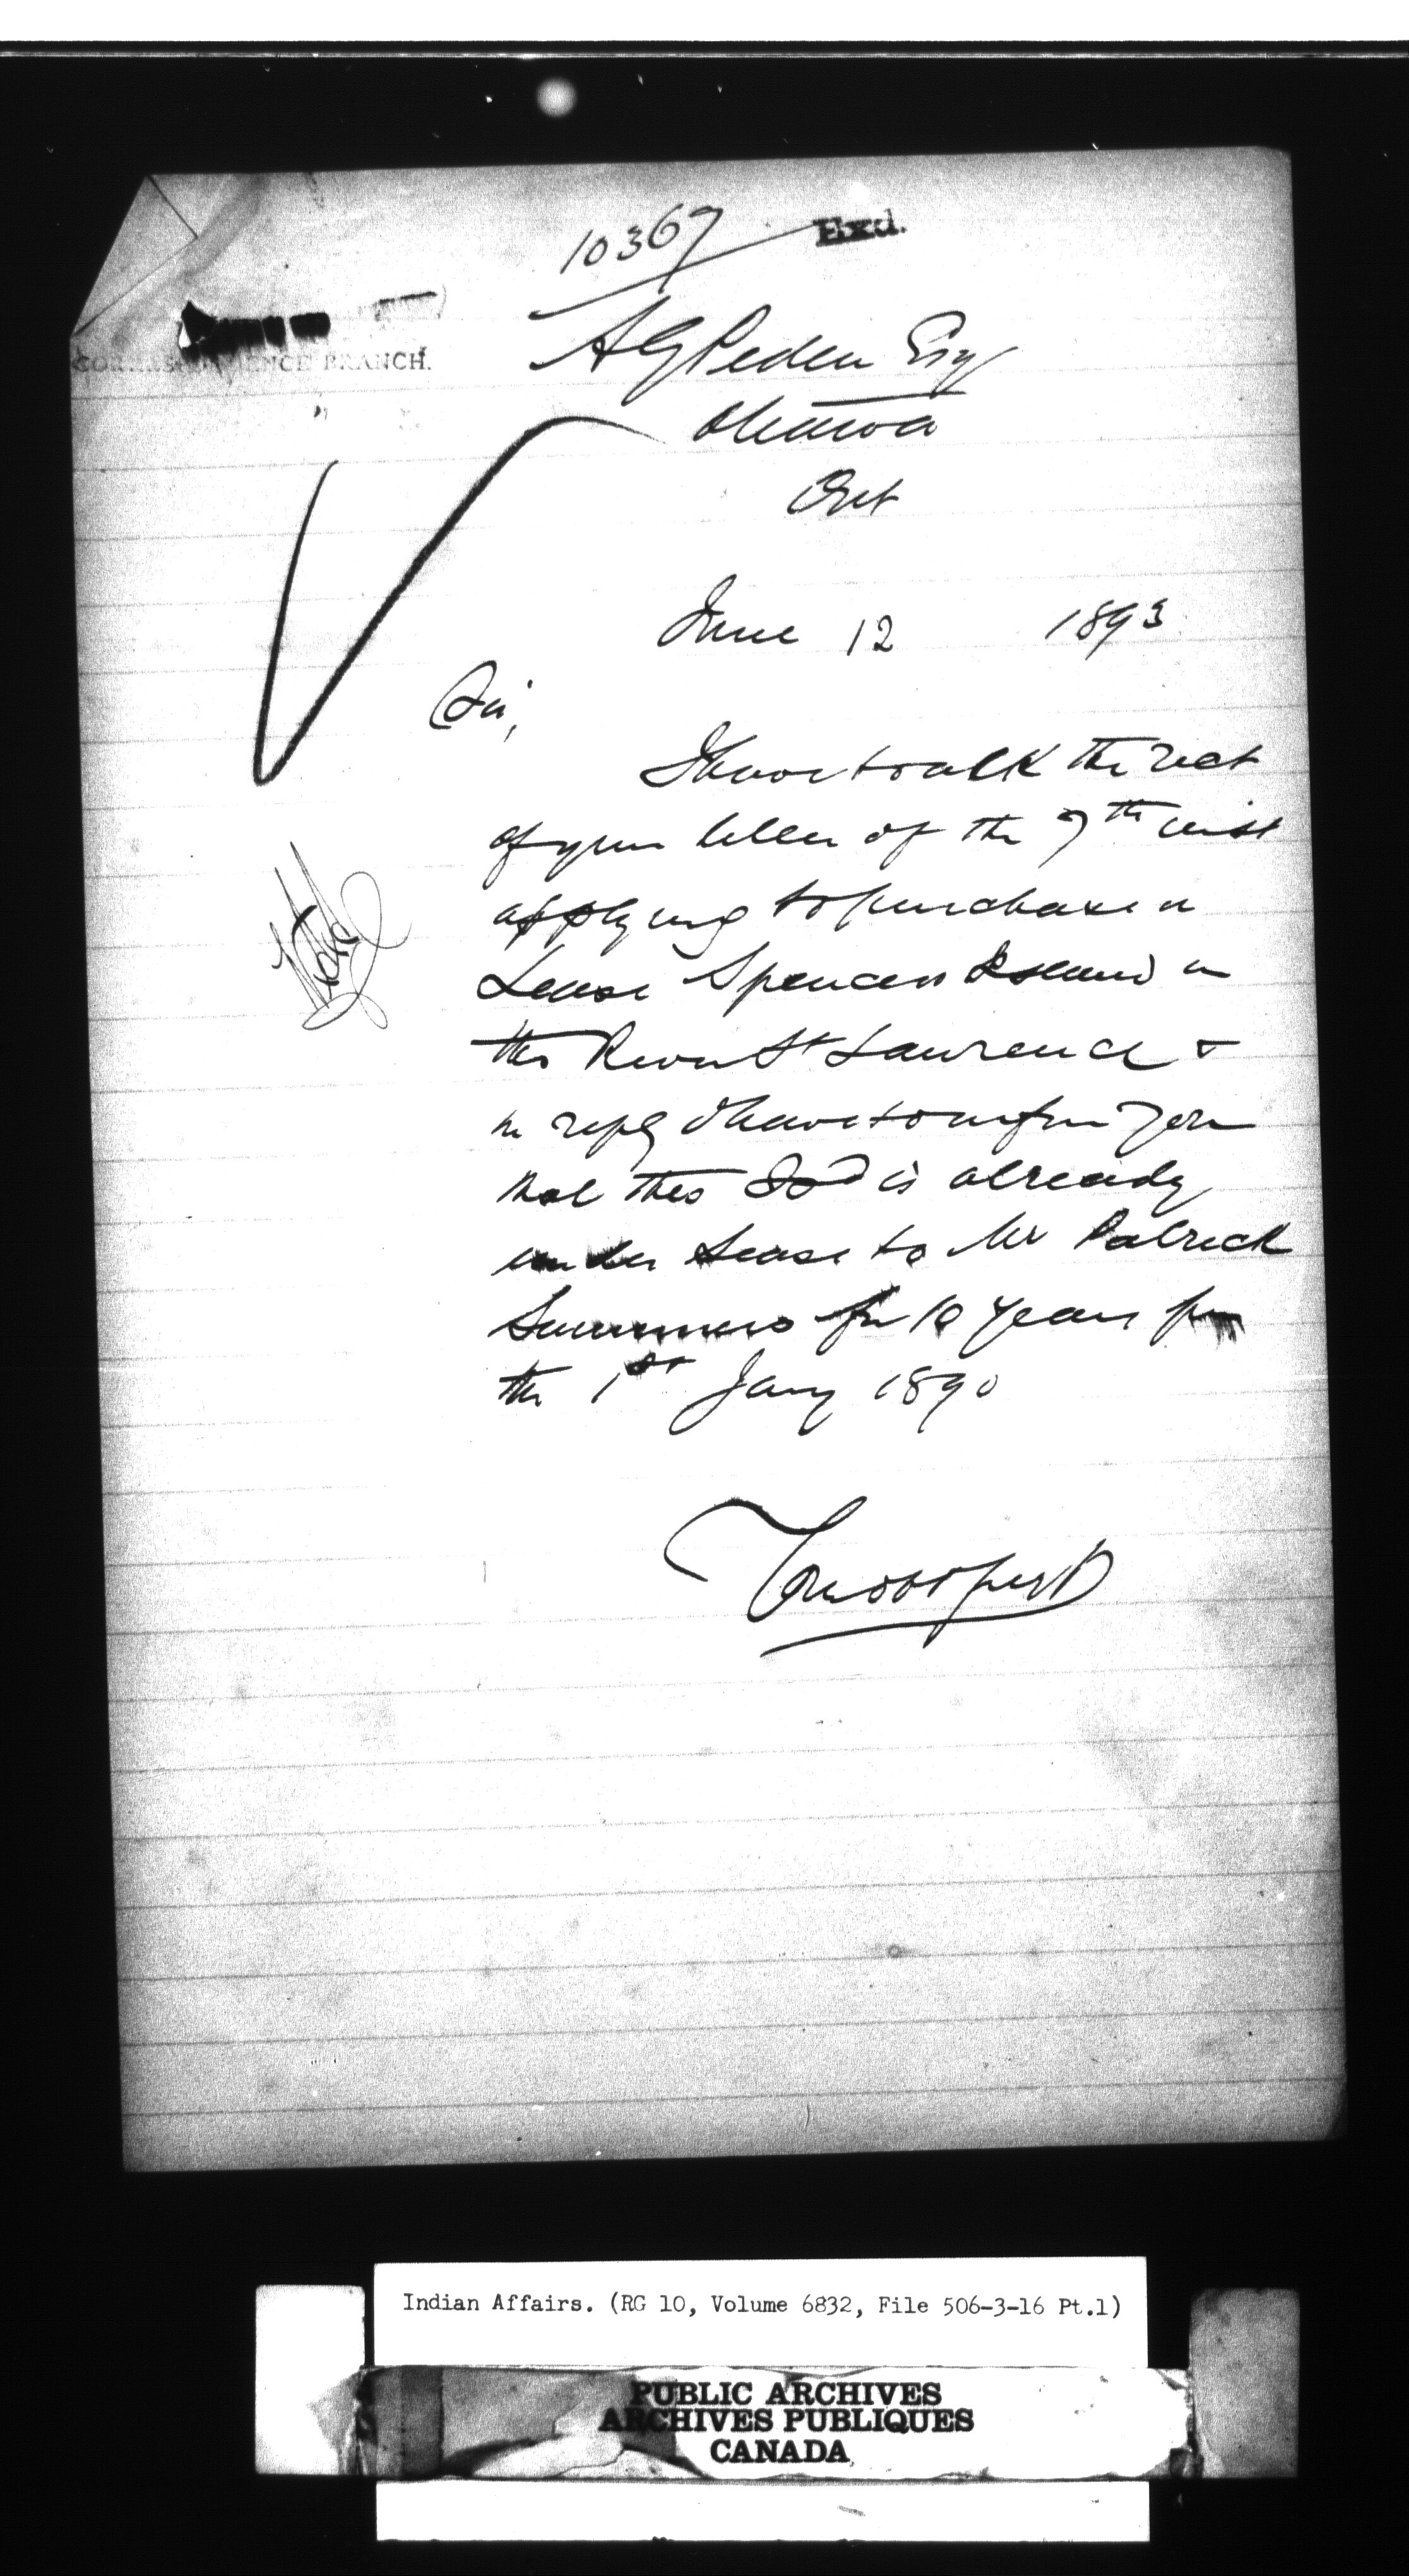 10367
Exd.
CORRESPONDENCE BRANCH.
A G Peden Esq
Ottawa
Ont
June 12 1893
Sir,
I have to ack the rect
of your letter of the 7th inst
applying to purchase or
Lease Spencers Island in
the River St Lawrence &
in reply I have to inform you
that this Isd is already
under Lease to Mr Patrick
Summers for 10 years from
the 1st Jany 1890
Indian Affairs. (RG 10, Volume 6832, File 506-3-16 Pt.1)
PUBLIC ARCHIVES
ARCHIVES PUBLIQUES
CANADA